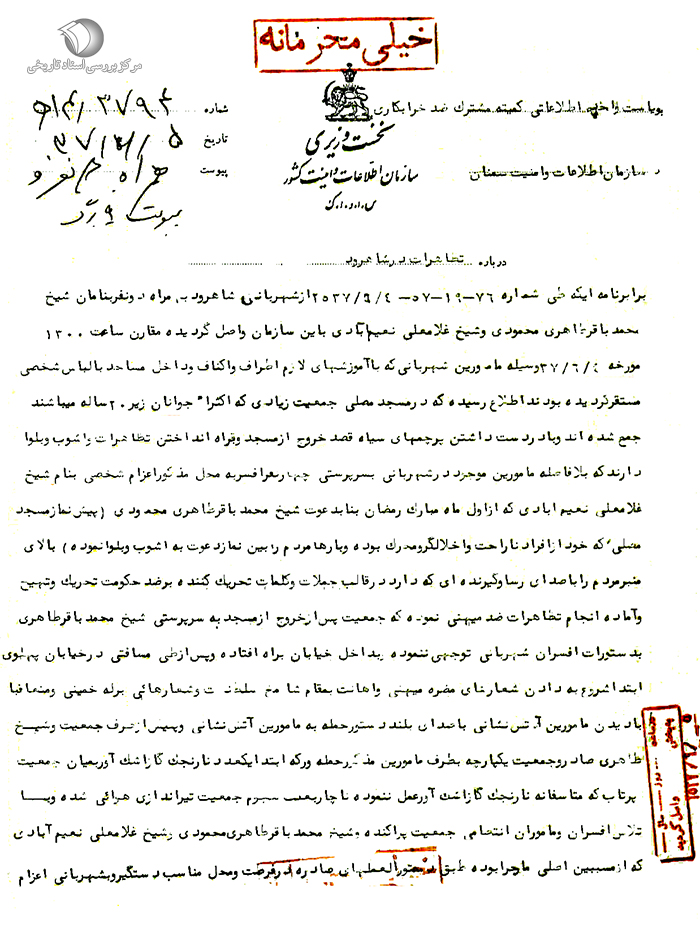 خیلی محرمانه
مرکز بررسی اسناد تاریخی
بریاست داخلی اطلاعاتی کمیته مشترک ضد خرابکاری
شماره
نخست وزیری
تاریخ
سازمان اطلاعات و امنیت کشور
پیوست همراه
س.ا.و.ا.ک
سازمان اطلاعات و امنیت سمنان
درباره تظاهرات در شاهرود
برابرنامه ایکه طی شماره ۷۶-۱۹-۵۷-۲۵۳۷/۶/۴ ازشهربانی شاهرود به همراه دونفربنامان شیخ
محمد باقرطاهری محمودی وشیخ غلامعلی نعیم آبادی باین سازمان واصل گردیده مقارن ساعت ۱۳۰۰
مورخه ۳۷/۶/۴ وسیله مامورین شهربانی که باآموزشهای لازم اطراف واکناف وداخل مساجد بالباس شخصی
مستقرگردیده بودند اطلاع رسیده که درمسجد مصلی جمعیت زیادی که اکثراً جوانان زیر ۲۰ ساله میباشند
جمع شده اند وبادردست داشتن پرچمهای سیاه قصد خروج ازمسجد وبراه انداختن تظاهرات واشوب وبلوا
دارند که بلافاصله مامورین موجود درشهربانی بسرپرستی چهارنفرافسربه محل مذکوراعزام شخصی بنام شیخ
غلامعلی نعیم ابادی که ازاول ماه مبارک رمضان بنابدعوت شیخ محمد باقرطاهری محمودی (پیش نمازمسجد
مصلی که خود ازافراد ناراحت واخلالگرومحرک بوده وبارهامردم رابین نمازدعوت به اشوب وبلوانموده) بالای
منبرمردم راباصدای رساوگیرنده ای که دارد درقالب جملات وکلمات تحریک کننده برضد حکومت تحریک وتهیج
وآماده انجام تظاهرات ضد میهنی نموده که جمعیت پس ازخروج ازمسجد به سرپرستی شیخ محمد باقرطاهری
بدستورات افسران شهربانی توجهی ننموده وبداخل خیابان براه افتاده وپس ازطی مسافتی درخیابان پهلوی
ابتدا شروع به دادن شعارهای مضره میهنی واهانت بمقام شامخ سلطنت وشعارهائی برله خمینی ومتعاقبا
بادیدن مامورین آتش نشانی باصدای بلند دستورحمله به مامورین آتش نشانی وپلیس ازطرف جمعیت وشیخ
طاهری صادروجمعیت یکپارچه بطرف مامورین مذکورحمله ورکه ابتدا یکعدد نارنجک گازاشک آوربمیان جمعیت
پرتاب که متاسفانه نارنجک گازاشک آورعمل ننموده ناچاربعلت هجوم جمعیت تیراندازی هوائی شده وبا
تلاش افسران وماموران انتظامی جمعیت پراکنده وشیخ محمد باقرطاهری محمودی وشیخ غلامعلی نعیم آبادی
که ازمسببین اصلی ماجرابوده طبق دستورالعملهای صادره درفرصت ومحل مناسب دستگیروبشهربانی اعزام
واصل گردید